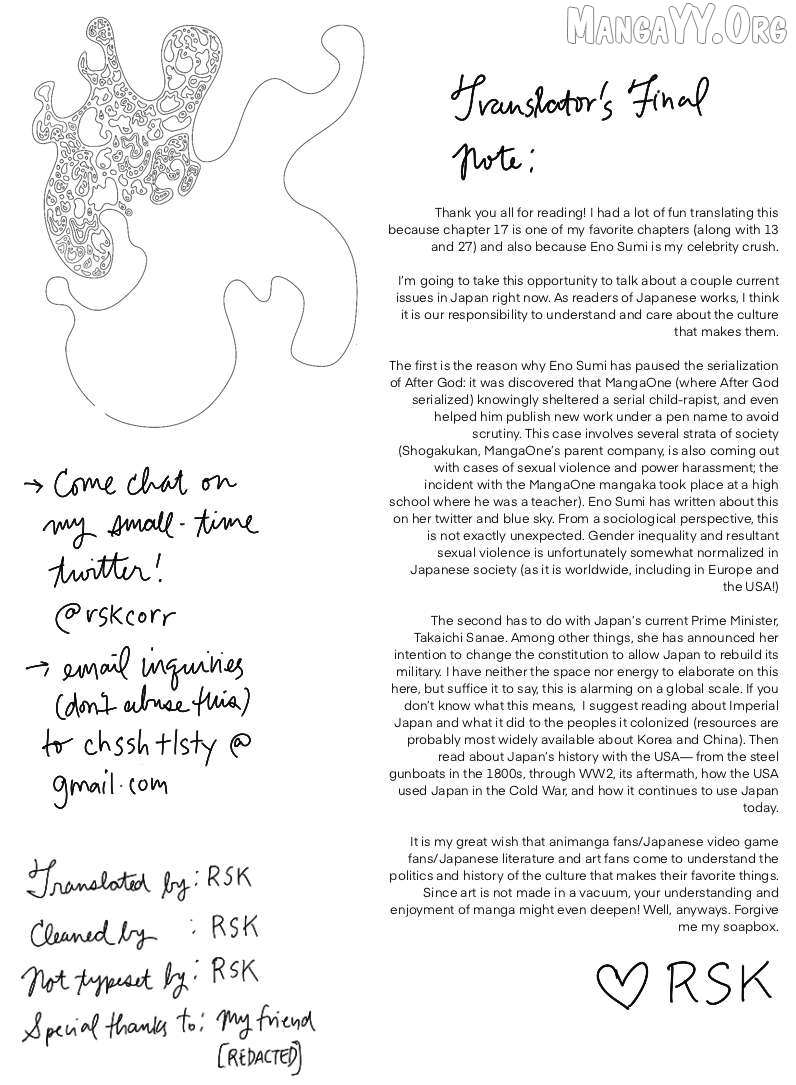 MANGAYY.ORG
Translator's Final
Note:
Thank you all for reading! I had a lot of fun translating this
because chapter 17 is one of my favorite chapters (along with 13
and 27) and also because Eno Sumi is my celebrity crush.
I'm going to take this opportunity to talk about a couple current
issues in Japan right now. As readers of Japanese works, I think
it is our responsibility to understand and care about the culture
that makes them.
The first is the reason why Eno Sumi has paused the serialization
of After God: it was discovered that MangaOne (where After God
serialized) knowingly sheltered a serial child-rapist, and even
helped him publish new work under a pen name to avoid
scrutiny. This case involves several strata of society
(Shogakukan, MangaOne's parent company, is also coming out
with cases of sexual violence and power harassment; the
incident with the MangaOne mangaka took place at a high
school where he was a teacher). Eno Sumi has written about this
on her twitter and blue sky. From a sociological perspective, this
is not exactly unexpected. Gender inequality and resultant
sexual violence is unfortunately somewhat normalized in
Japanese society (as it is worldwide, including in Europe and
the USA!)
The second has to do with Japan's current Prime Minister,
Takaichi Sanae. Among other things, she has announced her
intention to change the constitution to allow Japan to rebuild its
military. I have neither the space nor energy to elaborate on this
here, but suffice it to say, this is alarming on a global scale. If you
don't know what this means, I suggest reading about Imperial
Japan and what it did to the peoples it colonized (resources are
probably most widely available about Korea and China). Then
read about Japan's history with the USA— from the steel
gunboats in the 1800s, through WW2, its aftermath, how the USA
used Japan in the Cold War, and how it continues to use Japan
today.
It is my great wish that animanga fans/Japanese video game
fans/Japanese literature and art fans come to understand the
politics and history of the culture that makes their favorite things.
Since art is not made in a vacuum, your understanding and
enjoyment of manga might even deepen! Well, anyways. Forgive
me my soapbox.
♡ RSK
→ Come chat on
my small-time
twitter!
@rskcorr
→ email inquiries
(don't abuse this)
to chsshtlsty@
gmail.com
Translated by: RSK
Cleaned by : RSK
Not typeset by: RSK
Special thanks to: my friend
[REDACTED]